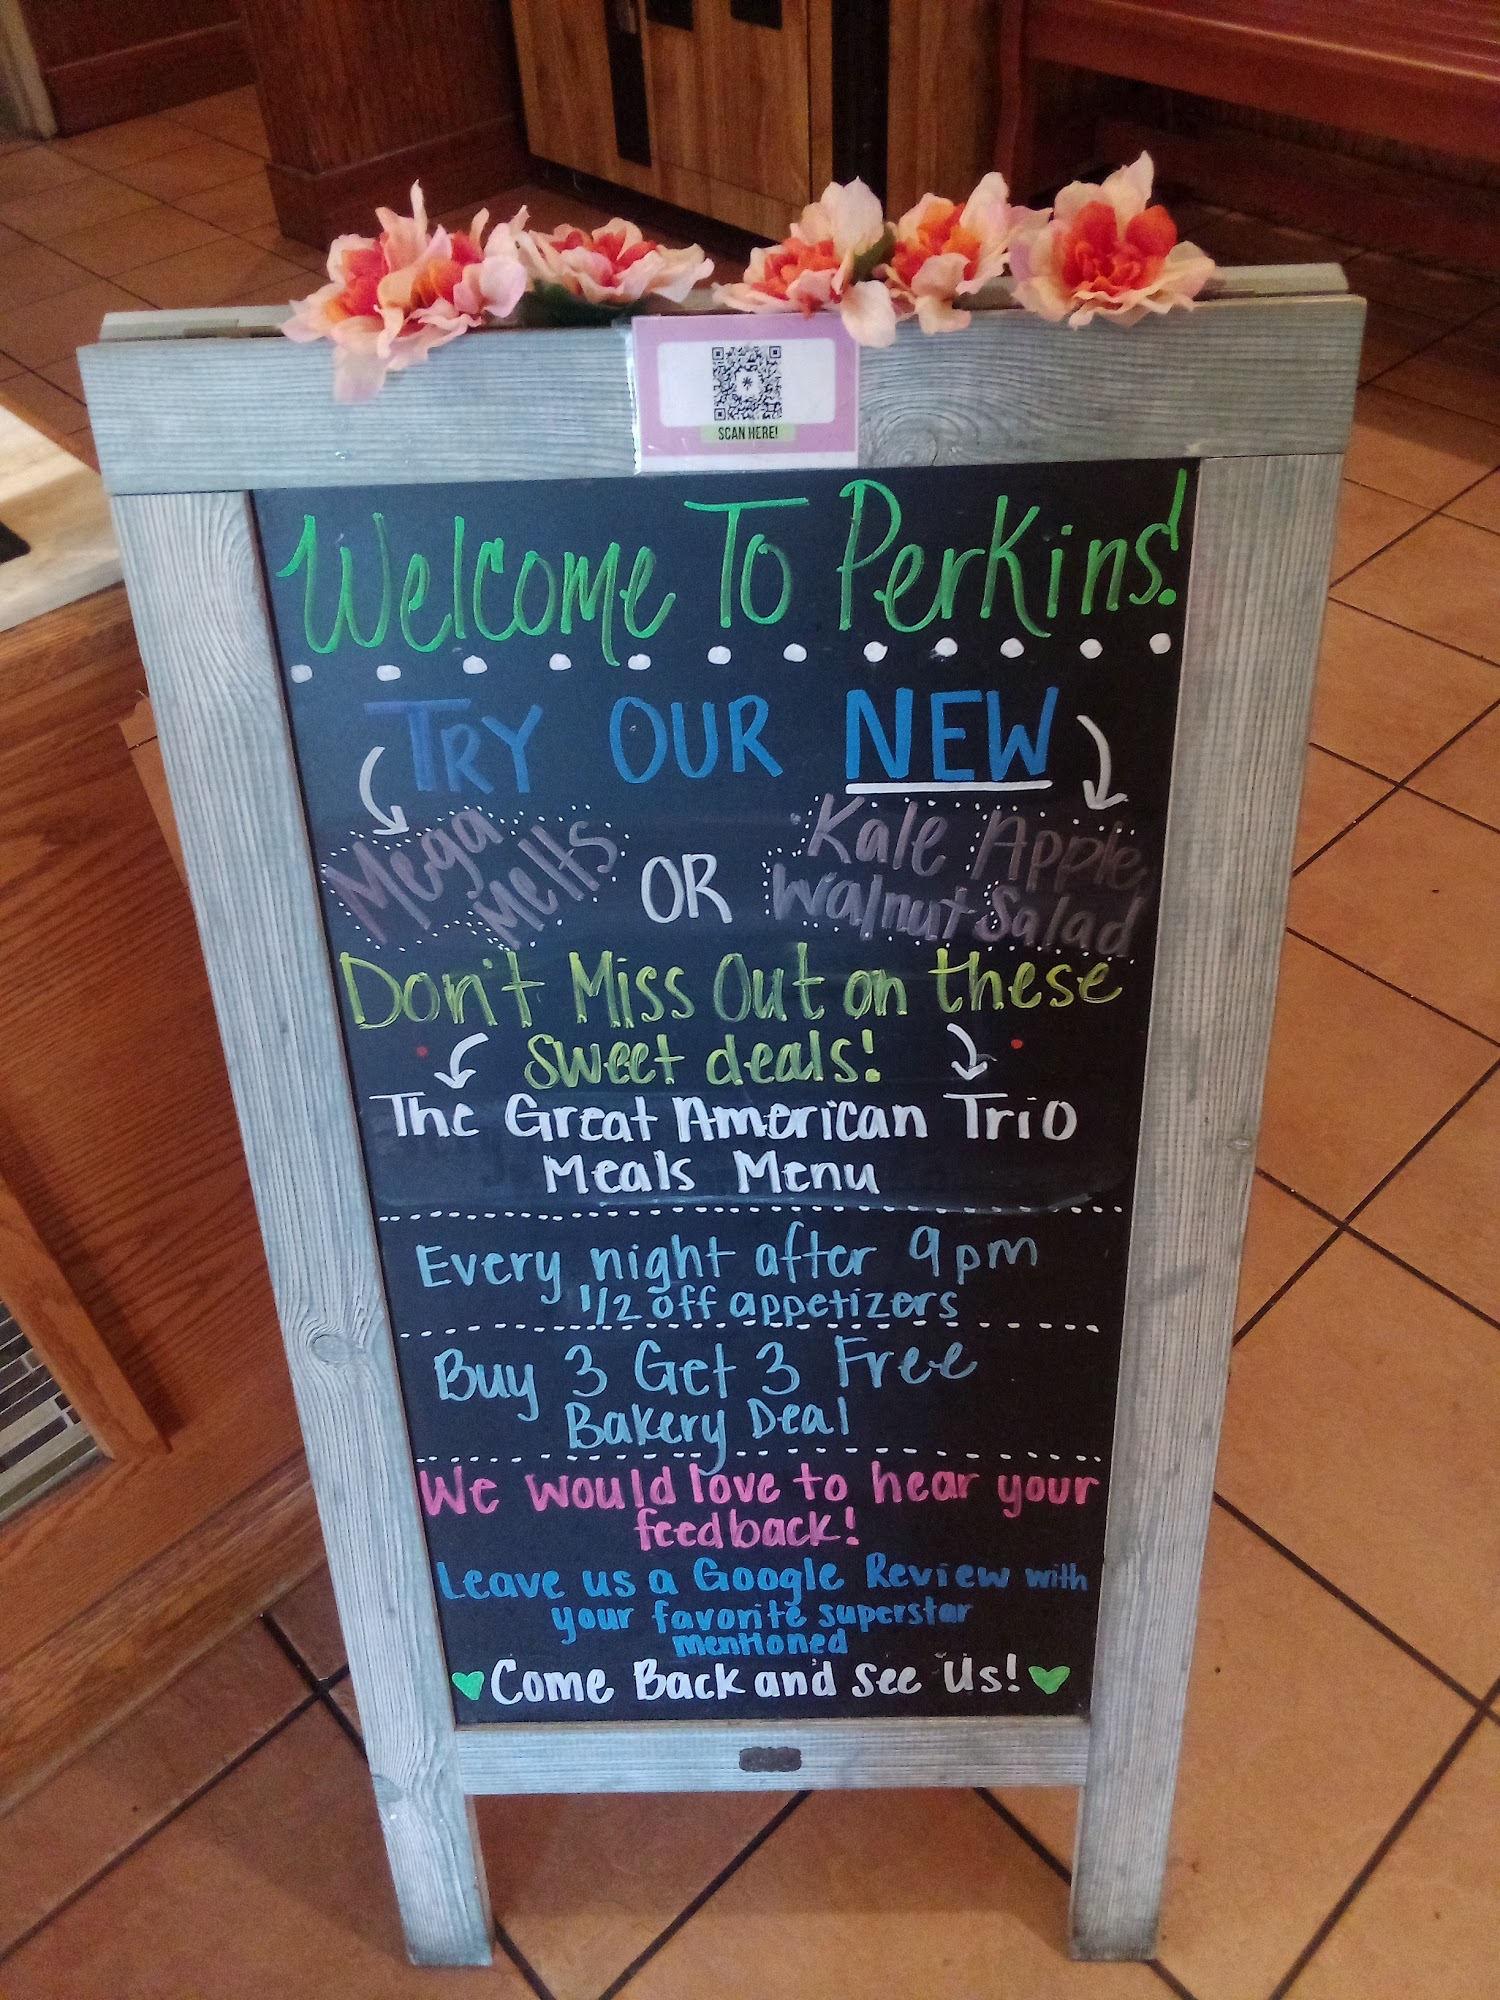 SCAN HERE!
Welcome To Perkins!
TRY OUR NEW
Mega Melts OR Kale Apple Walnut Salad
Don't Miss Out on these
sweet deals!
The Great American Trio
Meals Menu
Every night after 9pm
1/2 off appetizers
Buy 3 Get 3 Free
Bakery Deal
We would love to hear your
feedback!
Leave us a Google Review with
your favorite superstar
mentioned
Come Back and See Us!